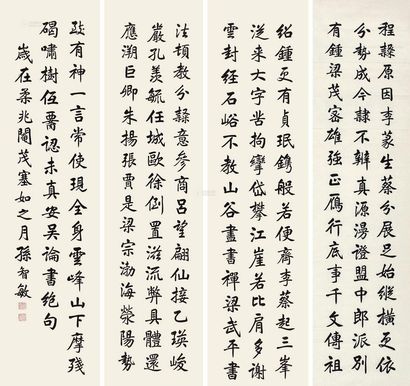 程隸原因李篆生蔡分展足始縱橫更依
分勢成今隸不辨真源漫證盟中郎派別
有鍾梁茂密雄強正雁行底事千文傳祖
紹鍾更有貞珉鐫般若便齊李蔡起三峯
從來大字苦拘攣岱攀江崖若比肩多謝
雲封經石峪不教山谷盡書禪梁武平書
法頓教分隸意參商呂望翩仙接乙瑛峻
嚴孔羨毓任城歐徐倒置滋流弊具體還
應溯巨卿朱揚張賈是梁宗渤海滎陽勢
跂有神一言常使現全身雲峰山下摩殘
碣嘯樹低簷認未真安吳論書絕句
歲在柔兆閹茂塞如之月孫智敏